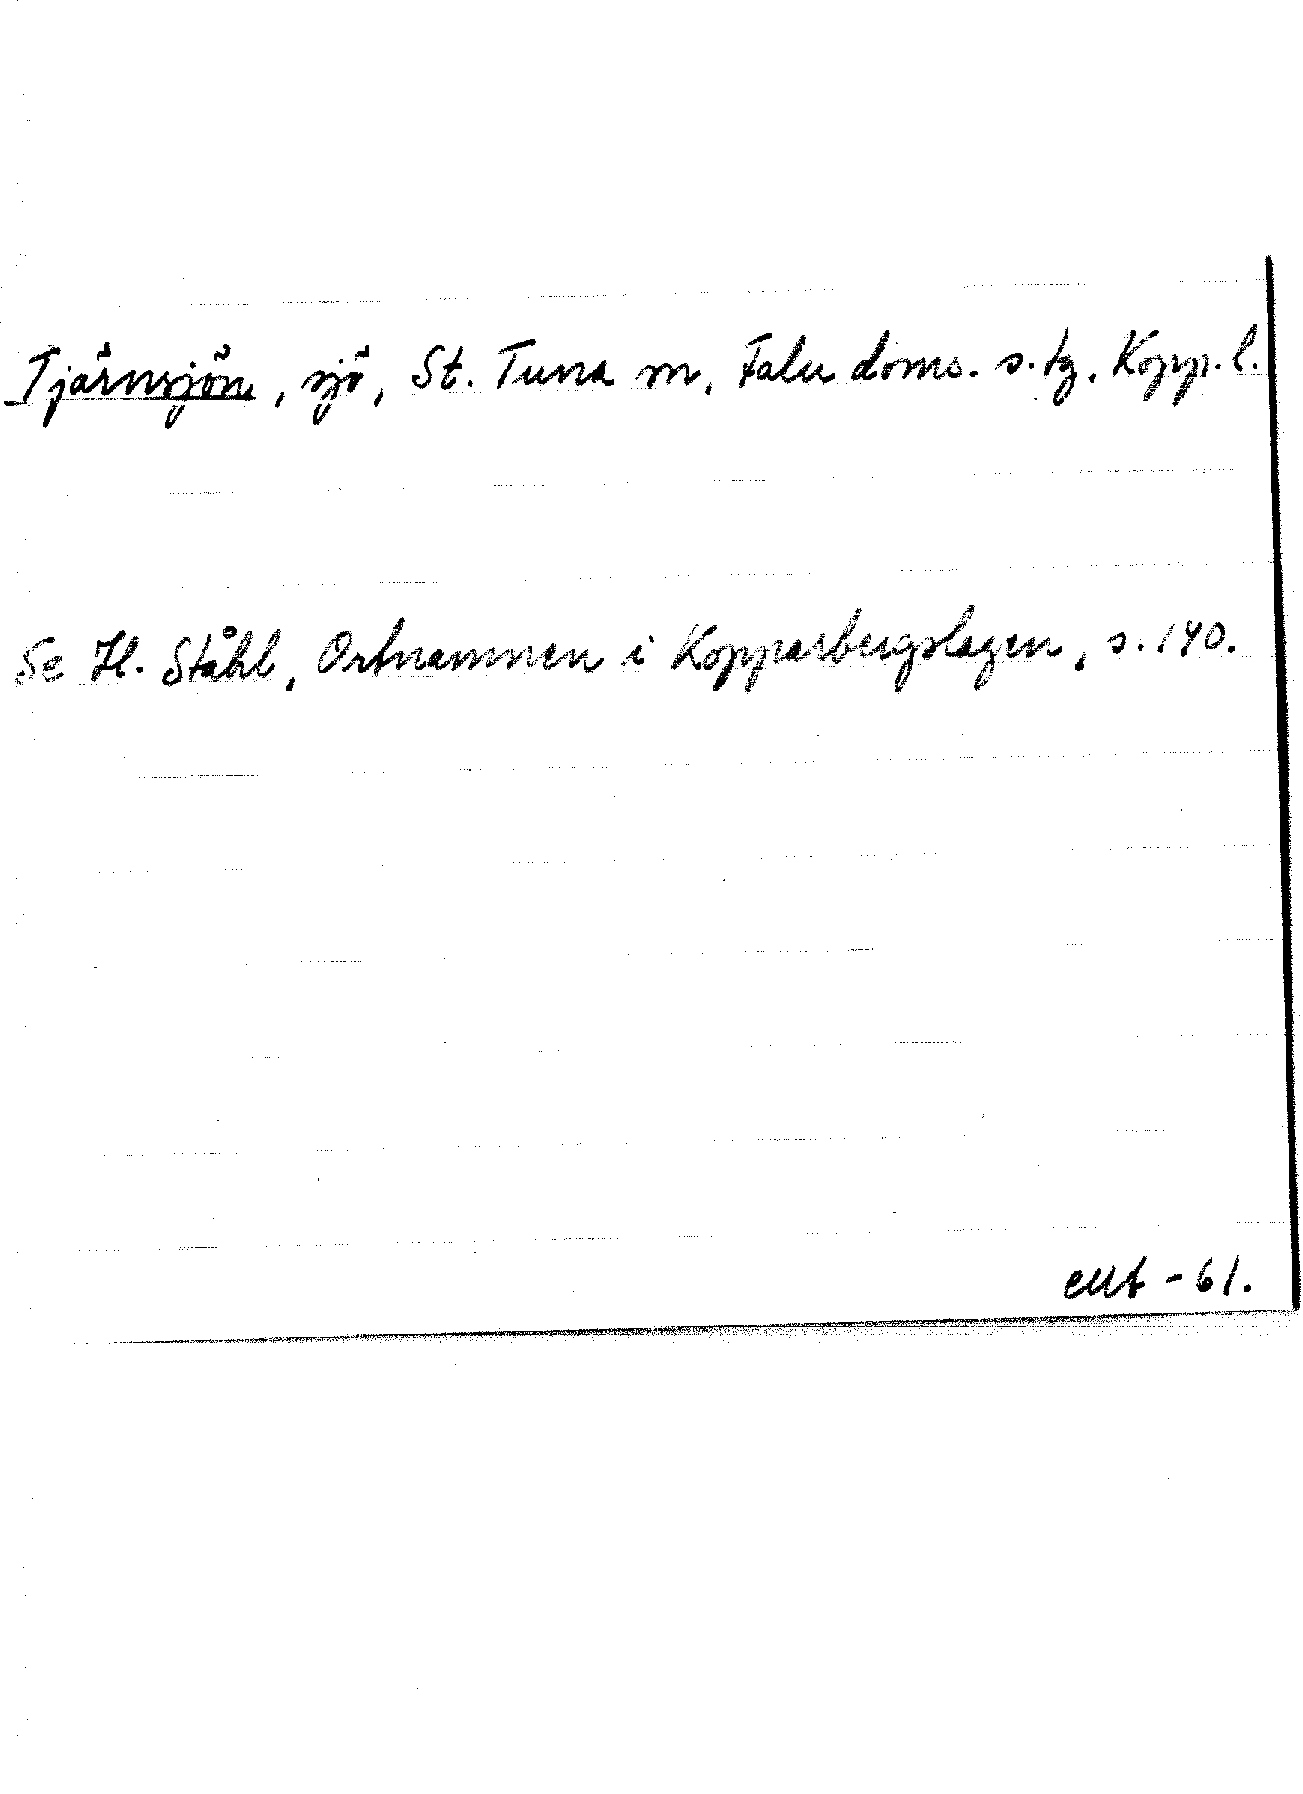 Tjärnsjön, sjö, St. Tuna sn, Falu doms. s. tg. Kopp. l.
Se H. Ståhl, Ortnamnen i Kopparbergslagen, s. 140.
-61.